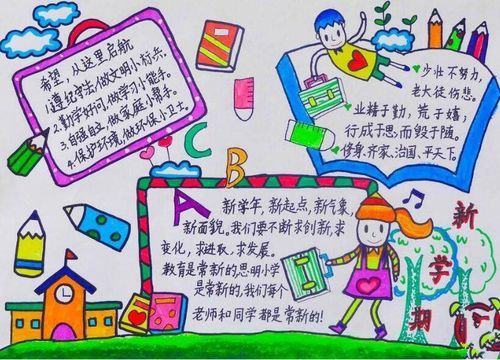 希望,从这里启航
1.遵纪守法,做文明小标兵。
2.勤学好问,做学习小能手。
3.自强自立,做家庭小帮手。
4.保护环境,做环保小卫士。
少壮不努力,
老大徒伤悲。
业精于勤,荒于嬉;
行成于思,而毁于随。
修身、齐家、治国、平天下。
A B C
新学年,新起点,新气象,
新面貌,我们要不断求创新,求
变化,求进取,求发展。
教育是常新的思明小学
是常新的,我们每个
老师和同学都是常新的!
新学期